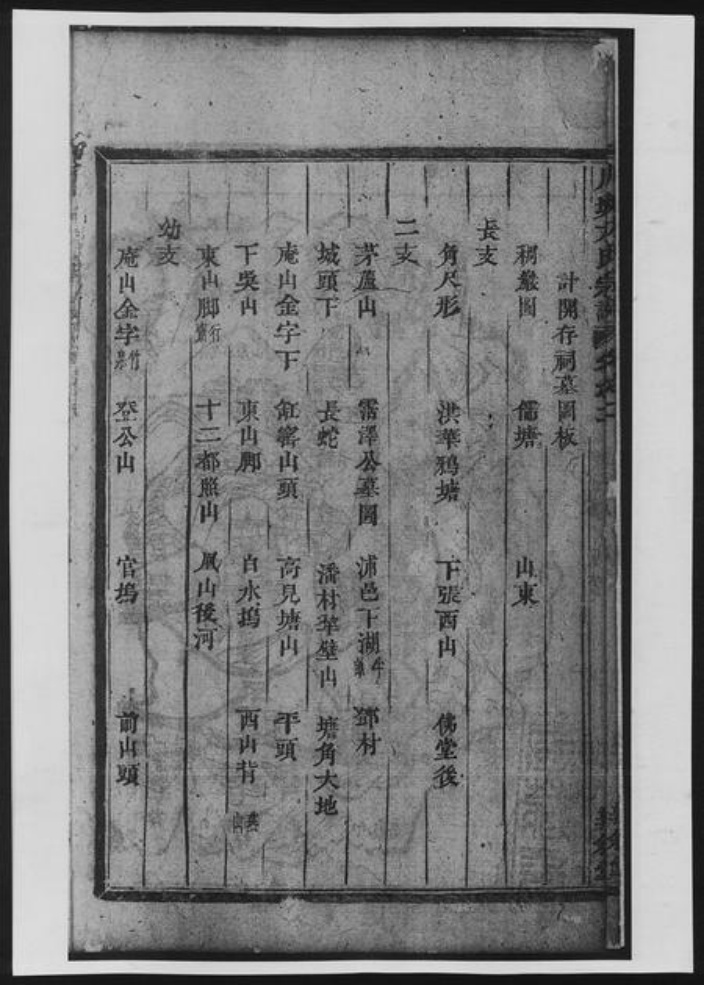 計開存祠墓圖板
儒塘 山東
長支
角尺形 洪華鴉塘 下張西山 佛堂後
二支
茅蘆山 雷澤公墓圖 浦邑下湖 鄧村
城頭下 長蛇 潘村華壁山 塘角大地
庵山金字下 缸窰山頭 高見塘山 平頭
下吳山 東山脚 白水塢 西山背
東山脚 十二都照山 鳳山後河
幼支
庵山金字 登公山 官塢 前山頭